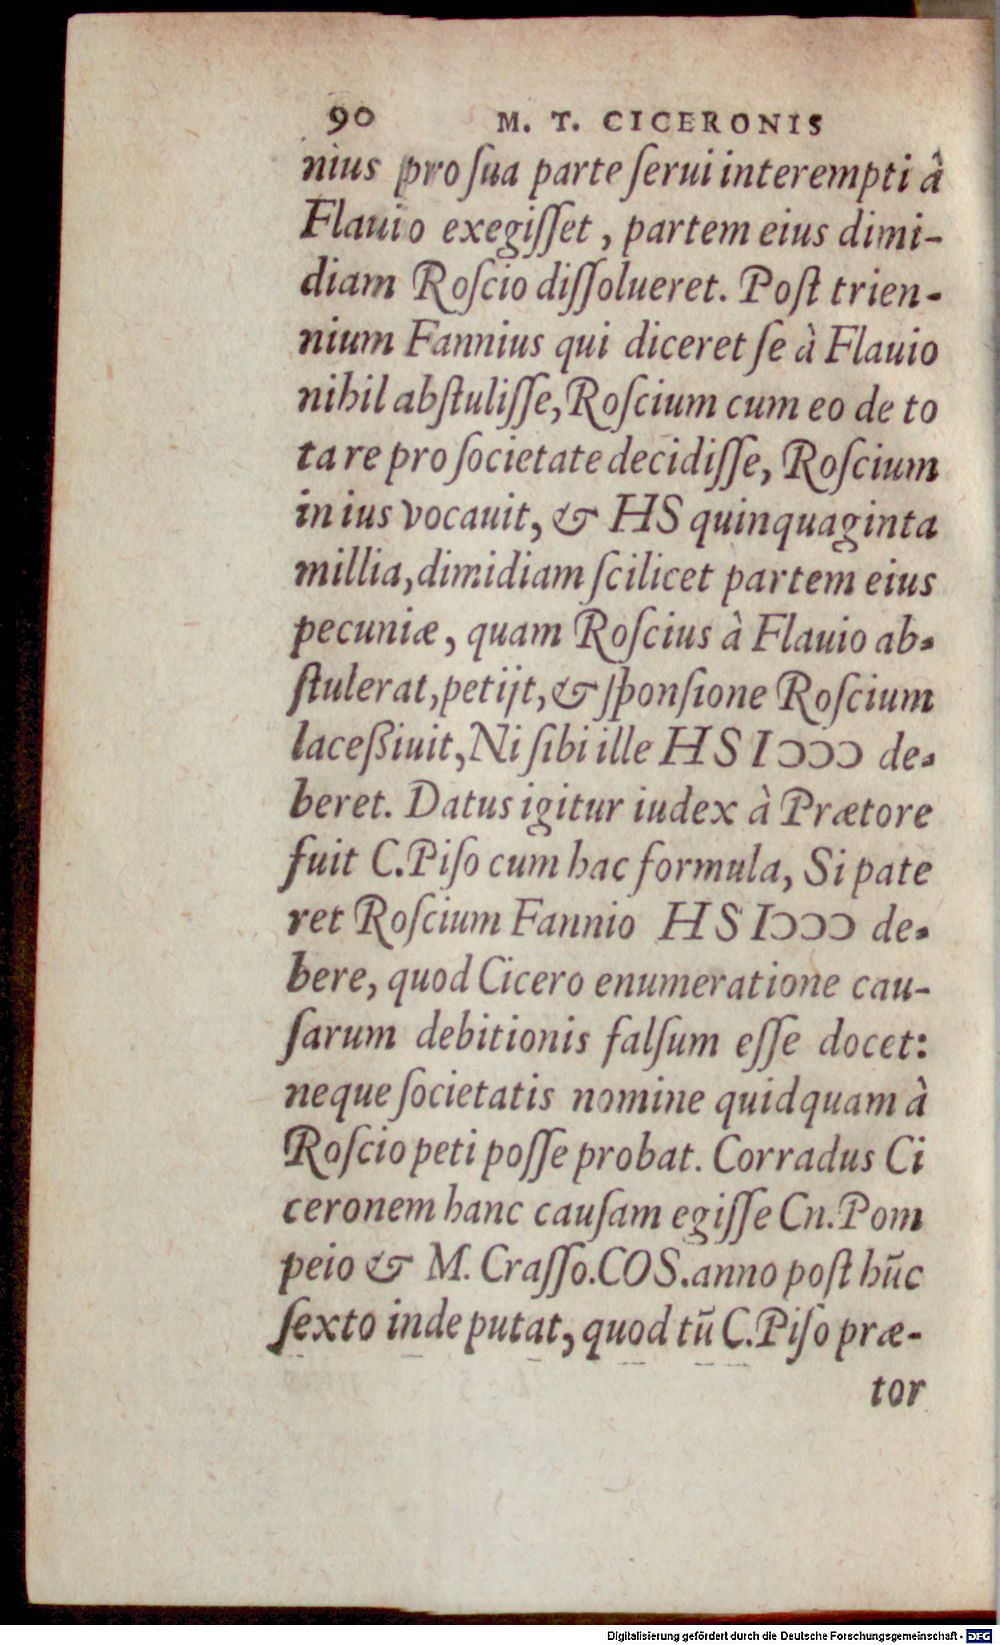 90 M. T. CICERONIS
nius pro ſua parte ſerui interempti à
Flauio exegiſſet, partem eius dimi-
diam Roſcio diſſolueret. Poſt trien-
nium Fannius qui diceret ſe à Flauio
nihil abſtuliſſe, Roſcium cum eo de to
ta re pro ſocietate decidiſſe, Roſcium
in ius vocauit, & HS quinquaginta
millia, dimidiam ſcilicet partem eius
pecuniæ, quam Roſcius à Flauio ab-
ſtulerat, petijt, & ſponſione Roſcium
laceßiuit, Ni ſibi ille HS IↃↃↃ de-
beret. Datus igitur iudex à Prætore
fuit C. Piſo cum hac formula, Si pate
ret Roſcium Fannio HS IↃↃↃ de-
bere, quod Cicero enumeratione cau-
ſarum debitionis falſum eſſe docet:
neque ſocietatis nomine quidquam à
Roſcio peti poſſe probat. Corradus Ci
ceronem hanc cauſam egiſſe Cn. Pom
peio & M. Craſſo. COS. anno poſt hūc
ſexto inde putat, quod tū C. Piſo præ-
tor
Digitalisierung gefördert durch die Deutsche Forschungsgemeinschaft - DFG